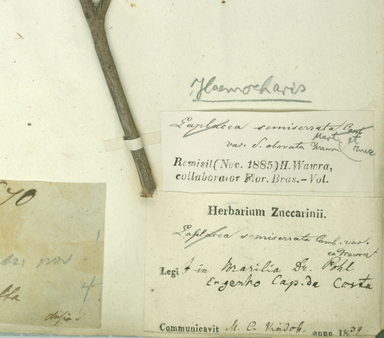 Haemocharis
Laplacea semiserrata Camb.
Mart. et
var. δ. obovata Wawra
Remisit (Nov. 1885) H. Wawra,
collaborator Flor. Bras.–Vol.
70
Herbarium Zuccarinii.
Laplacea semiserrata Camb. var.
Legi t in Brasilia Dr. Pohl
Engenho Cap. da Costa
4
Communicavit M. C. Vindob. anno 1839